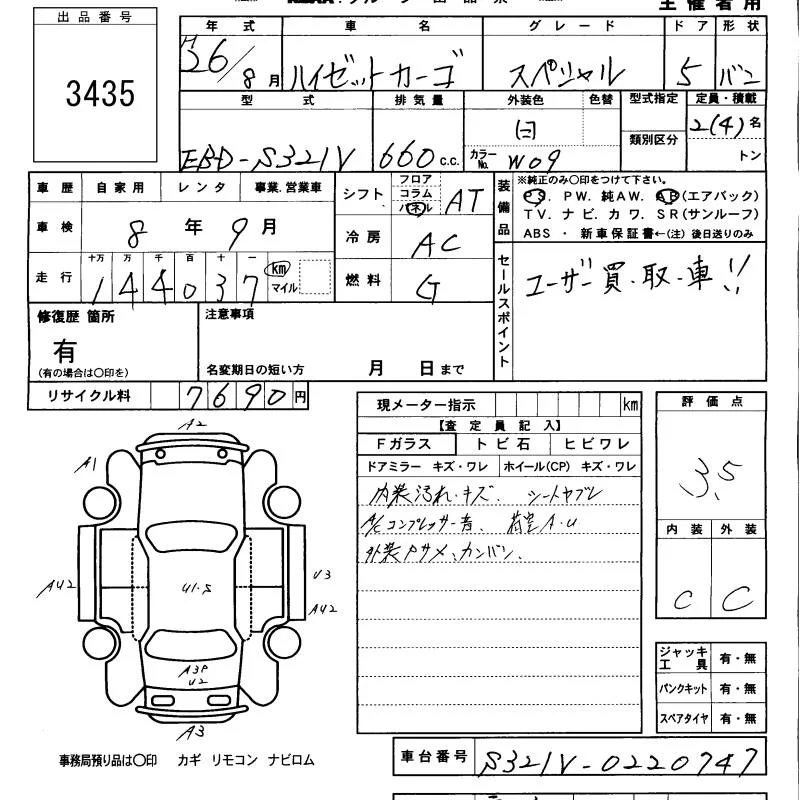 出品番号
3435
主催者用
年式 車名 グレード ドア 形状
H26/8月 ハイゼットカーゴ スペシャル 5 バン
型式 排気量 外装色 色替 型式指定 定員・積載
類別区分
EBD-S321V 660c.c. 白 カラーNo. W09 2(4)名
トン
車歴 自家用 レンタ 事業.営業車
車検 8年9月
走行 十万 万 千 百 十 一
144037 km マイル
シフト フロア コラム パネル AT
冷房 AC
燃料 G
装備品
※純正のみ○印をつけて下さい。
PS. PW. 純AW. AB(エアバック)
TV. ナビ. カワ. SR(サンルーフ)
ABS ・ 新車保証書←(注) 後日送りのみ
セールスポイント
ユーザー買・取・車!!
修復歴 箇所
有
(有の場合は○印を)
注意事項
名変期日の短い方 月 日まで
リサイクル料 7690円
現メーター指示 km
【査定員記入】
Fガラス トビ石 ヒビワレ
ドアミラー キズ・ワレ ホイール(CP) キズ・ワレ
内装汚れ・キズ、 シートヤブレ
A/Cコンプレッサー音、 荷室A・U
外装クサメ、カンバン、
評価点
3.5
内装 外装
C C
ジャッキ工具 有・無
パンクキット 有・無
スペアタイヤ 有・無
A2
A1
AU2
U1・S
U3
AU2
A3P
U2
A3
事務局預り品は○印 カギ リモコン ナビロム
車台番号 S321V-0220747